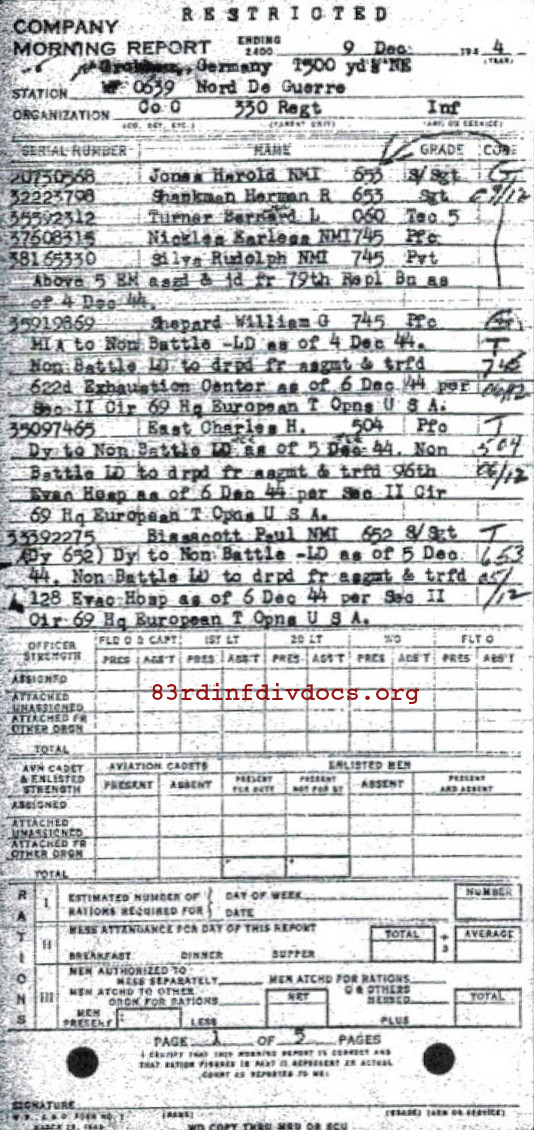 RESTRICTED
COMPANY
MORNING REPORT ENDING 2400 9 Dec 194 4
(YEAR)
Germany 1500 yds NE
STATION 0639 Nord De Guerre
ORGANIZATION Co G 330 Regt Inf
(CO, DET, ETC.) (PARENT UNIT) (ARM OR SERVICE)
SERIAL NUMBER NAME GRADE CODE
20730568 Jones Harold NMI 653 S/Sgt
32223798 Shankman Herman R 653 Sgt
35592312 Turner Bernard L 060 Tec 5
37608315 Nickles Earless NMI 745 Pfc
38165330 Silva Rudolph NMI 745 Pvt
Above 5 EM asgd & jd fr 79th Repl Bn as
of 4 Dec 44.
35919869 Shepard William G 745 Pfc
MIA to Non Battle -LD as of 4 Dec 44. T
Non Battle LD to drpd fr asgmt & trfd 745
622d Exhaustion Center as of 6 Dec 44 per 06/12
Sec II Cir 69 Hq European T Opns U S A.
35097465 East Charles H. 504 Pfc T
Dy to Non Battle LD as of 5 Dec 44. Non 504
Battle LD to drpd fr asgmt & trfd 96th 06/12
Evac Hosp as of 6 Dec 44 per Sec II Cir
69 Hq European T Opns U S A.
33392275 Bissacott Paul NMI 652 S/Sgt T
(Dy 652) Dy to Non Battle -LD as of 5 Dec 653
44. Non Battle LD to drpd fr asgmt & trfd
128 Evac Hosp as of 6 Dec 44 per Sec II /12
Cir 69 Hq European T Opns U S A.
OFFICER STRENGTH FLD O & CAPT 1ST LT 2D LT WO FLT O
PRES ABS'T PRES ABS'T PRES ABS'T PRES ABS'T PRES ABS'T
ASSIGNED
ATTACHED UNASSIGNED
83rdinfdivdocs.org
ATTACHED FR OTHER ORGN
TOTAL
AVN CADET & ENLISTED STRENGTH AVIATION CADETS ENLISTED MEN
PRESENT ABSENT PRESENT FOR DUTY PRESENT NOT FOR DY ABSENT PRESENT AND ABSENT
ASSIGNED
ATTACHED UNASSIGNED
ATTACHED FR OTHER ORGN
TOTAL
RATIONS
I ESTIMATED NUMBER OF RATIONS REQUIRED FOR DAY OF WEEK DATE NUMBER
II MESS ATTENDANCE FOR DAY OF THIS REPORT TOTAL ÷ 3 AVERAGE
BREAKFAST DINNER SUPPER
III MEN AUTHORIZED TO MESS SEPARATELY MEN ATCHD FOR RATIONS
MEN ATCHD TO OTHER ORGN FOR RATIONS NET & OTHERS MESSED TOTAL
MEN PRESENT LESS PLUS
PAGE 1 OF 5 PAGES
I CERTIFY THAT THIS MORNING REPORT IS CORRECT AND
THAT RATION FIGURES IN PART III REPRESENT AN ACTUAL
COUNT AS REPORTED TO ME:
SIGNATURE
W.D., A.G.O. FORM NO. 1 (NAME) (GRADE) (ARM OR SERVICE)
WD COPY THRU MRU OR SCU